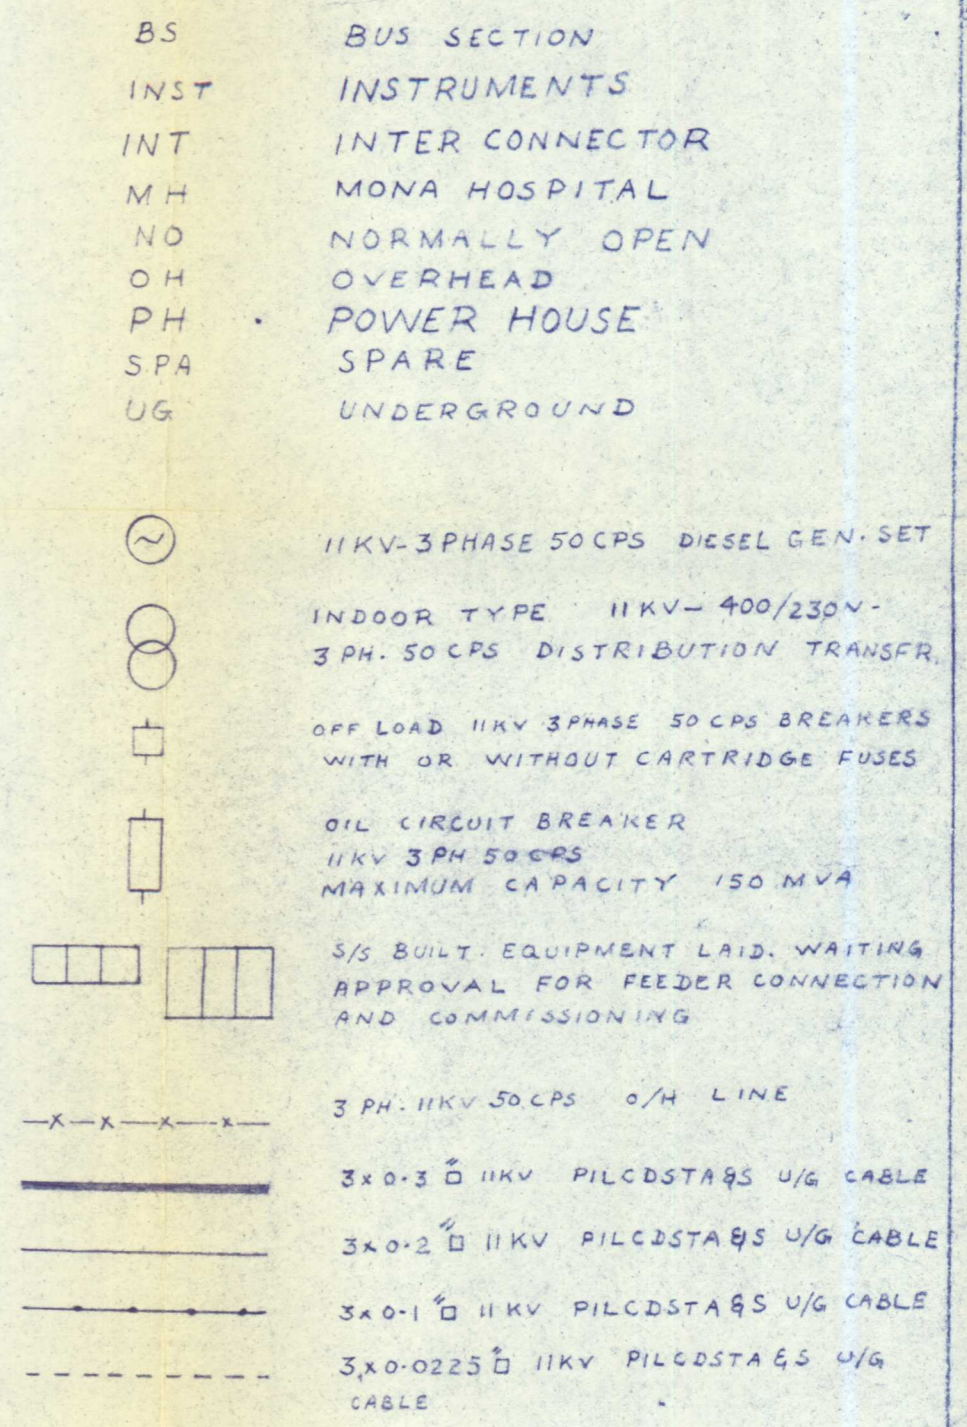 BS BUS SECTION
INST INSTRUMENTS
INT INTER CONNECTOR
MH MONA HOSPITAL
NO NORMALLY OPEN
OH OVERHEAD
PH POWER HOUSE
SPA SPARE
UG UNDERGROUND
11KV-3PHASE 50CPS DIESEL GEN. SET
INDOOR TYPE 11KV- 400/230V-
3 PH. 50CPS DISTRIBUTION TRANSFR.
OFF LOAD 11KV 3PHASE 50 CPS BREAKERS
WITH OR WITHOUT CARTRIDGE FUSES
OIL CIRCUIT BREAKER
11KV 3PH 50CPS
MAXIMUM CAPACITY 150 MVA
S/S BUILT. EQUIPMENT LAID. WAITING
APPROVAL FOR FEEDER CONNECTION
AND COMMISSIONING
3 PH. 11KV 50.CPS O/H LINE
3x0.3 "□ 11KV PILCDSTA&S U/G CABLE
3x0.2 "□ 11KV PILCDSTA&S U/G CABLE
3x0.1 "□ 11KV PILCDSTA&S U/G CABLE
3x0.0225 "□ 11KV PILCDSTA&S U/G
CABLE